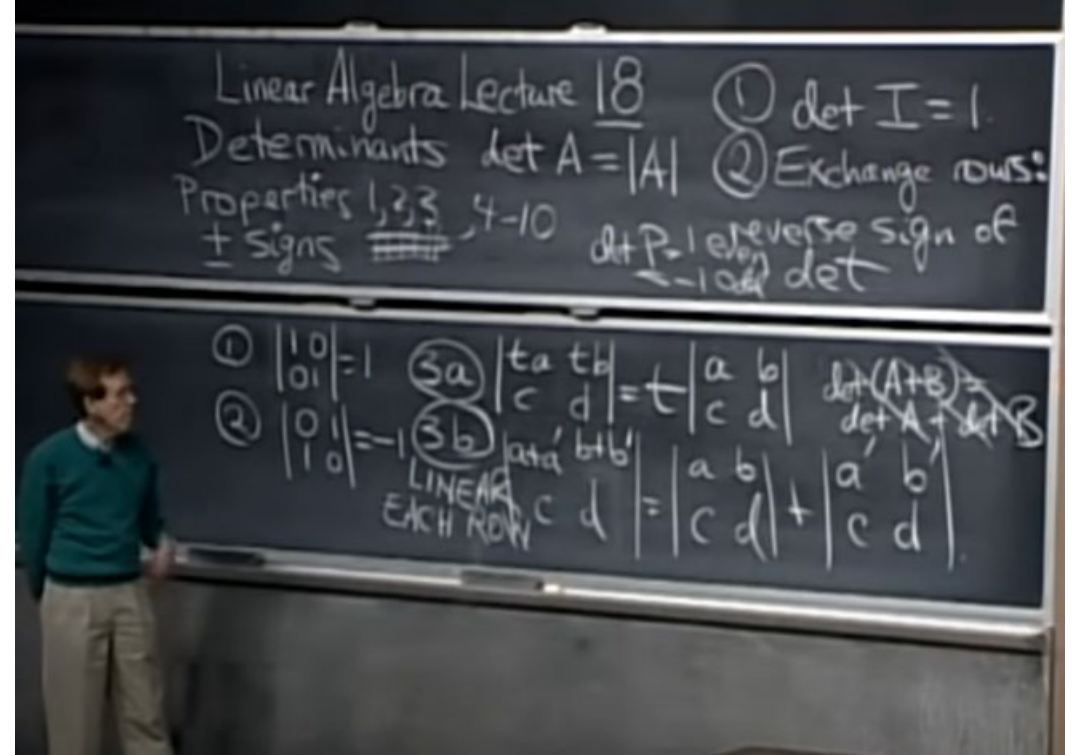 Linear Algebra Lecture 18
Determinants det A = |A|
Properties 1,2,3, 4-10
± signs
① det I = 1.
② Exchange rows:
reverse sign of
det
det P = 1 even
= -1 odd
① |1 0| = 1
|0 1|
② |0 1| = -1
|1 0|
3a |ta tb| = t |a b|
|c d| |c d|
3b |a+a' b+b'| = |a b| + |a' b'|
|c d| |c d| |c d|
LINEAR
EACH ROW
det(A+B) =
det A + det B